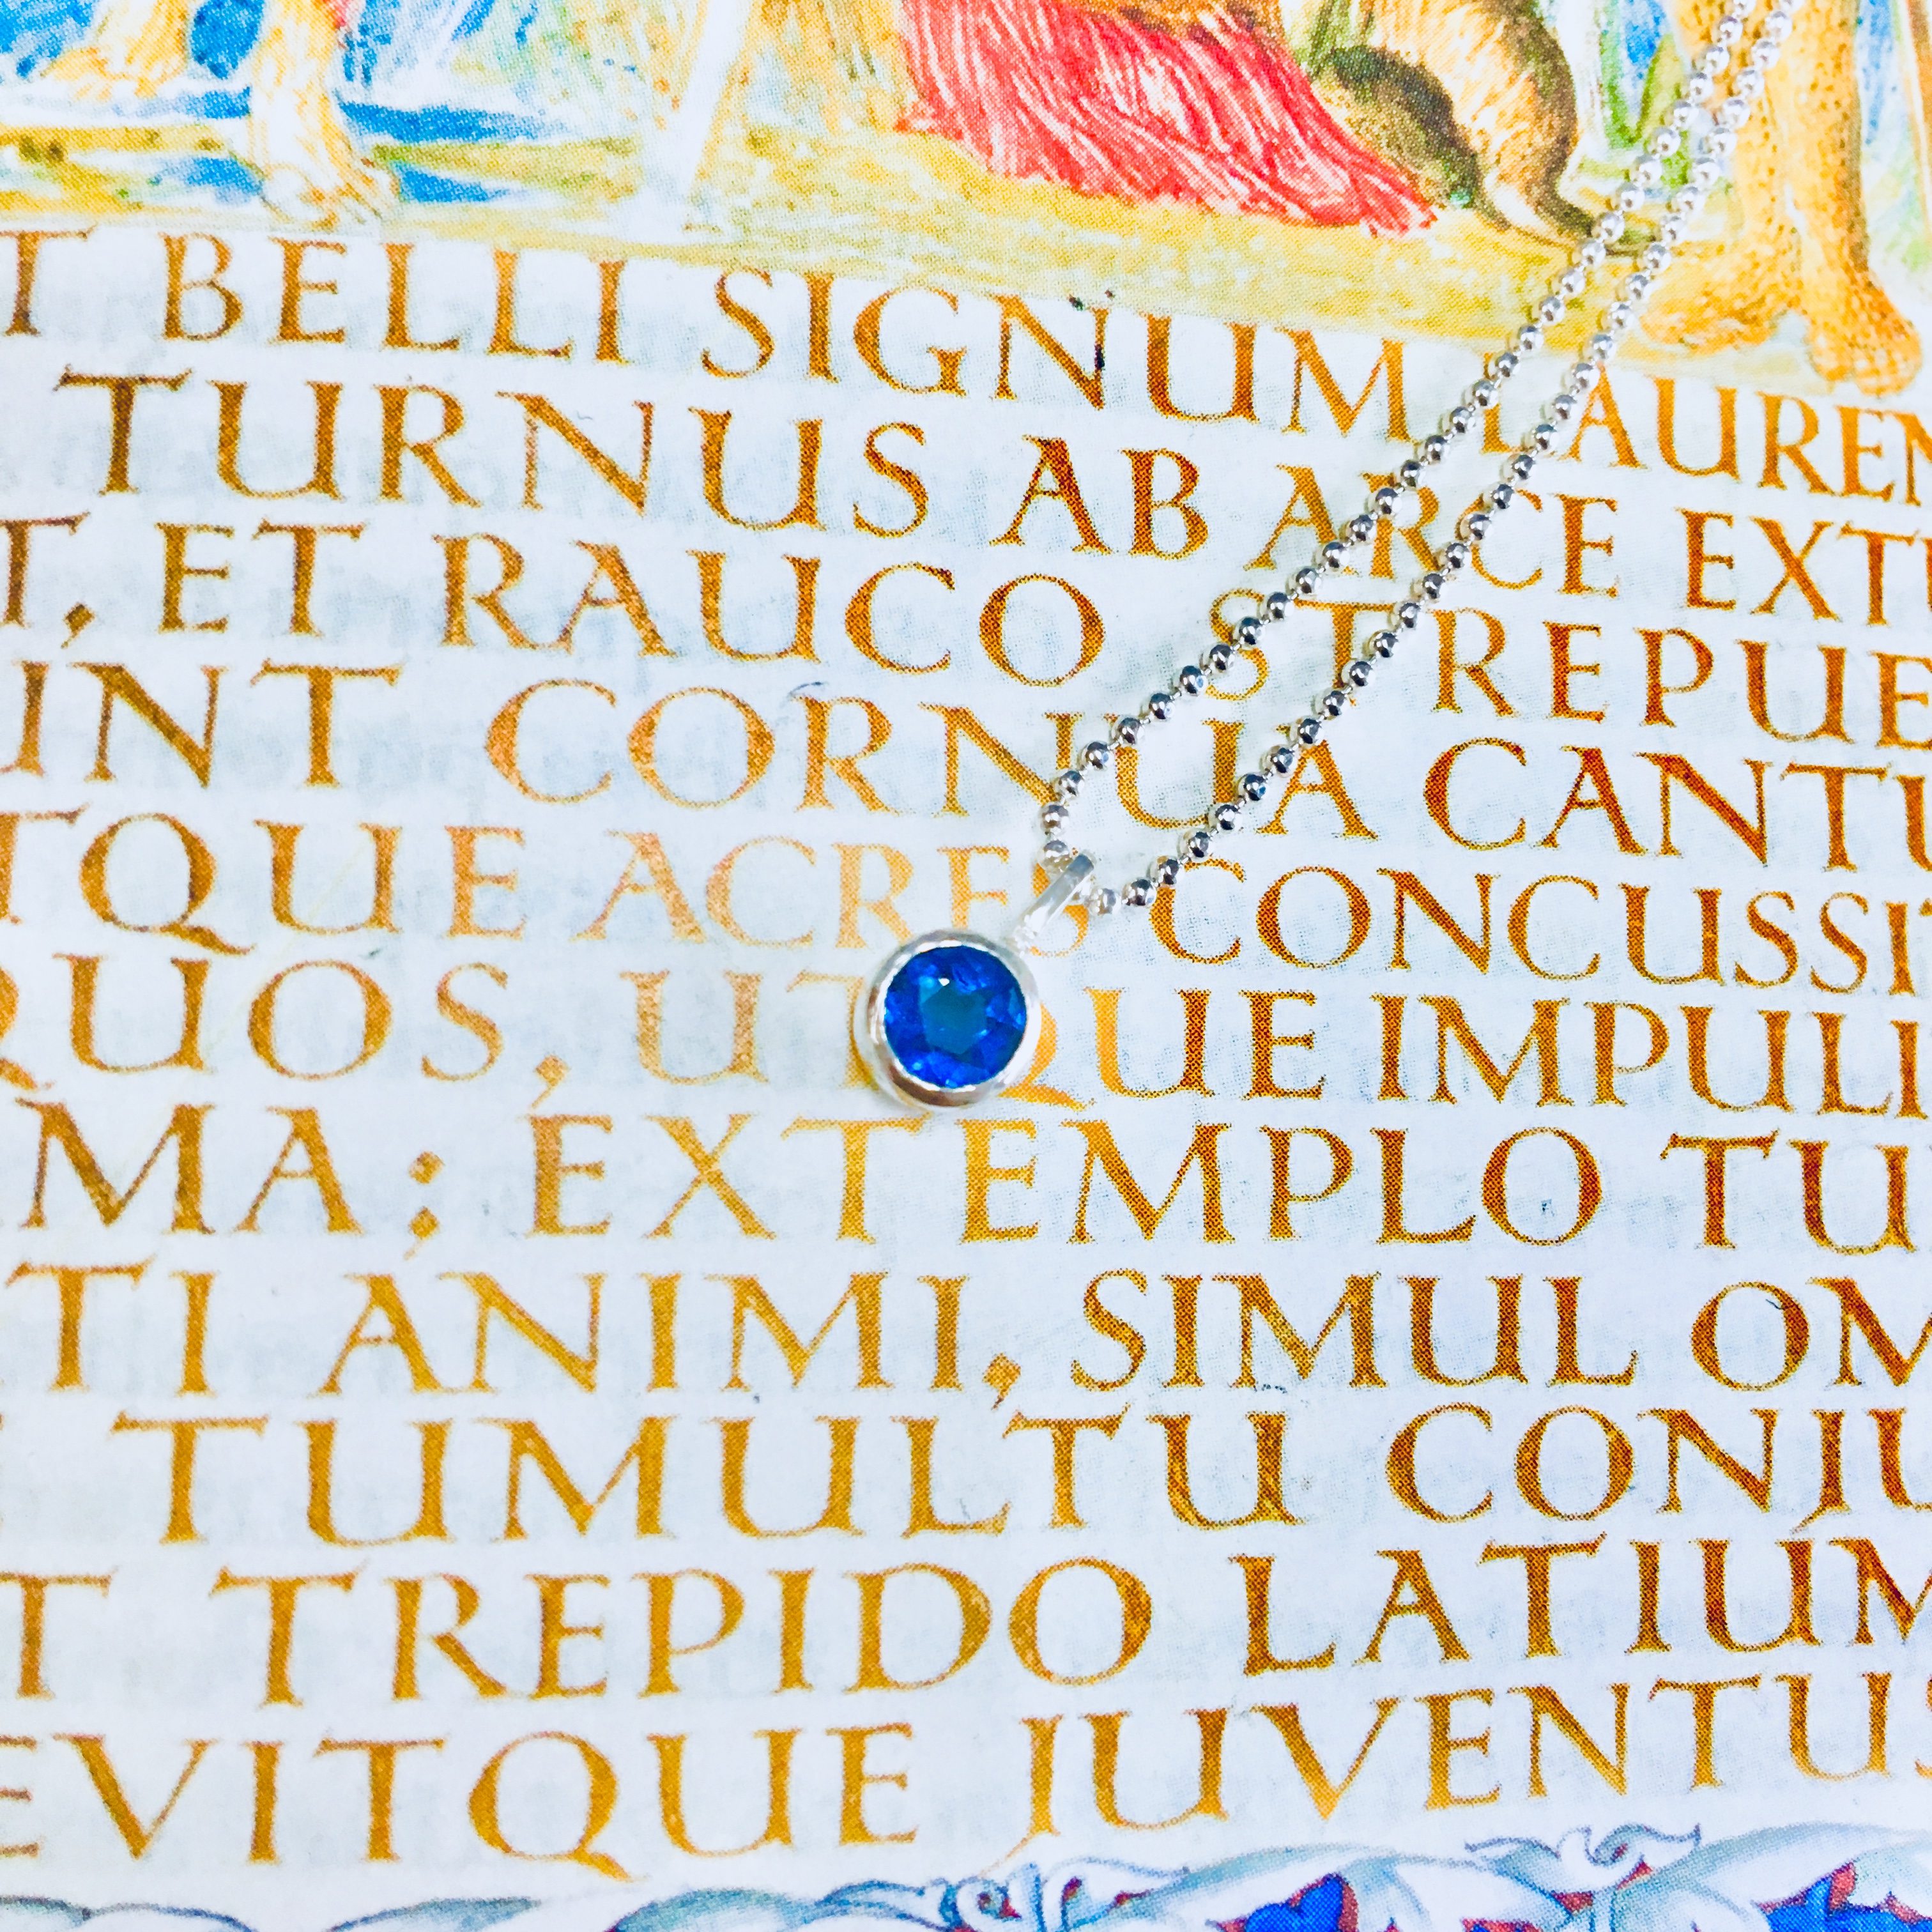 T BELLI SIGNUM LAUREN
TURNUS AB ARCE EXT
T, ET RAUCO STREPUE
UNT CORNUA CANTU
TQUE ACRES CONCUSSIT
QUOS, UTQUE IMPULI
MA: EXTEMPLO TU
TI ANIMI, SIMUL OM
TUMULTU CONJU
T TREPIDO LATIUM
EVITQUE JUVENTUS